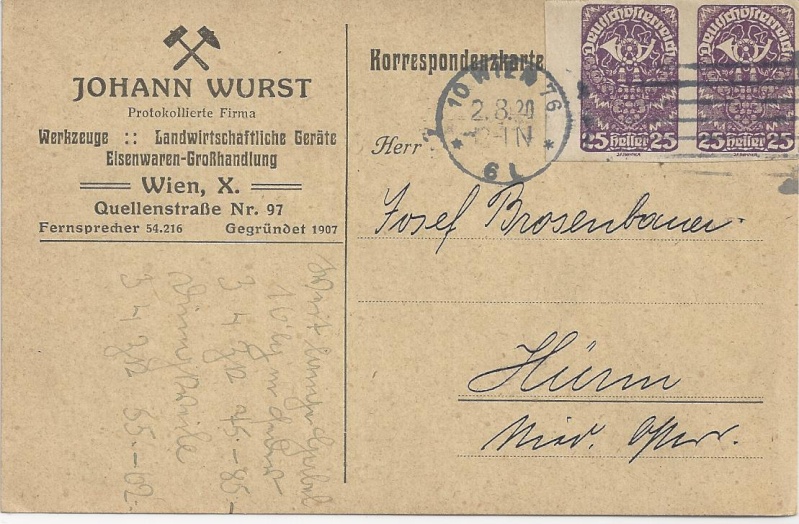 JOHANN WURST
Protokollierte Firma
Werkzeuge :: Landwirtschaftliche Geräte
Eisenwaren-Großhandlung
Wien, X.
Quellenstraße Nr. 97
Fernsprecher 54.216 Gegründet 1907
Korrespondenzkarte
Deutschösterreich
25 Heller 25
Deutschösterreich
25 Heller 25
10 WIEN 76
2.8.20
-IN
* 6 L *
Herr
Josef Brosenbauer
Hürm
Nied. Österr.
3 4
45.-85.-
3 4
55.-62.-